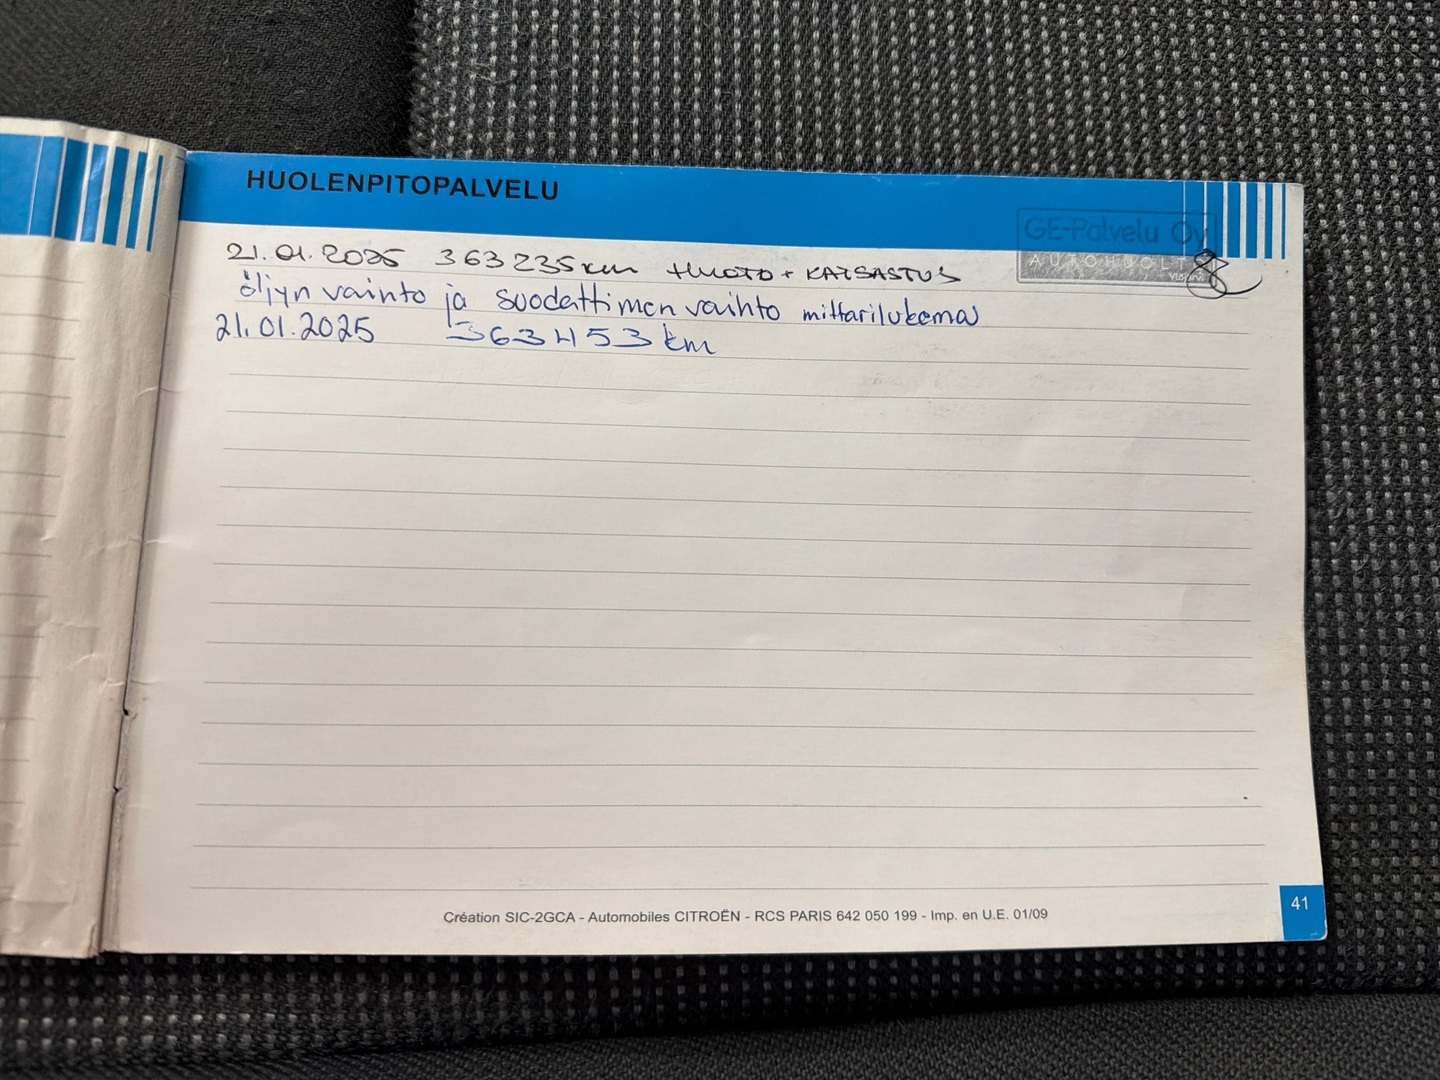 HUOLENPITOPALVELU
GE-Palvelu Oy
AUTOHUOLT
21.01.2025 363235 km HUOTO + KATSASTUS
öljyn vainto ja suodattimen vaihto mittarilukema
21.01.2025 363453 km
Création SIC-2GCA - Automobiles CITROËN - RCS PARIS 642 050 199 - Imp. en U.E. 01/09
41